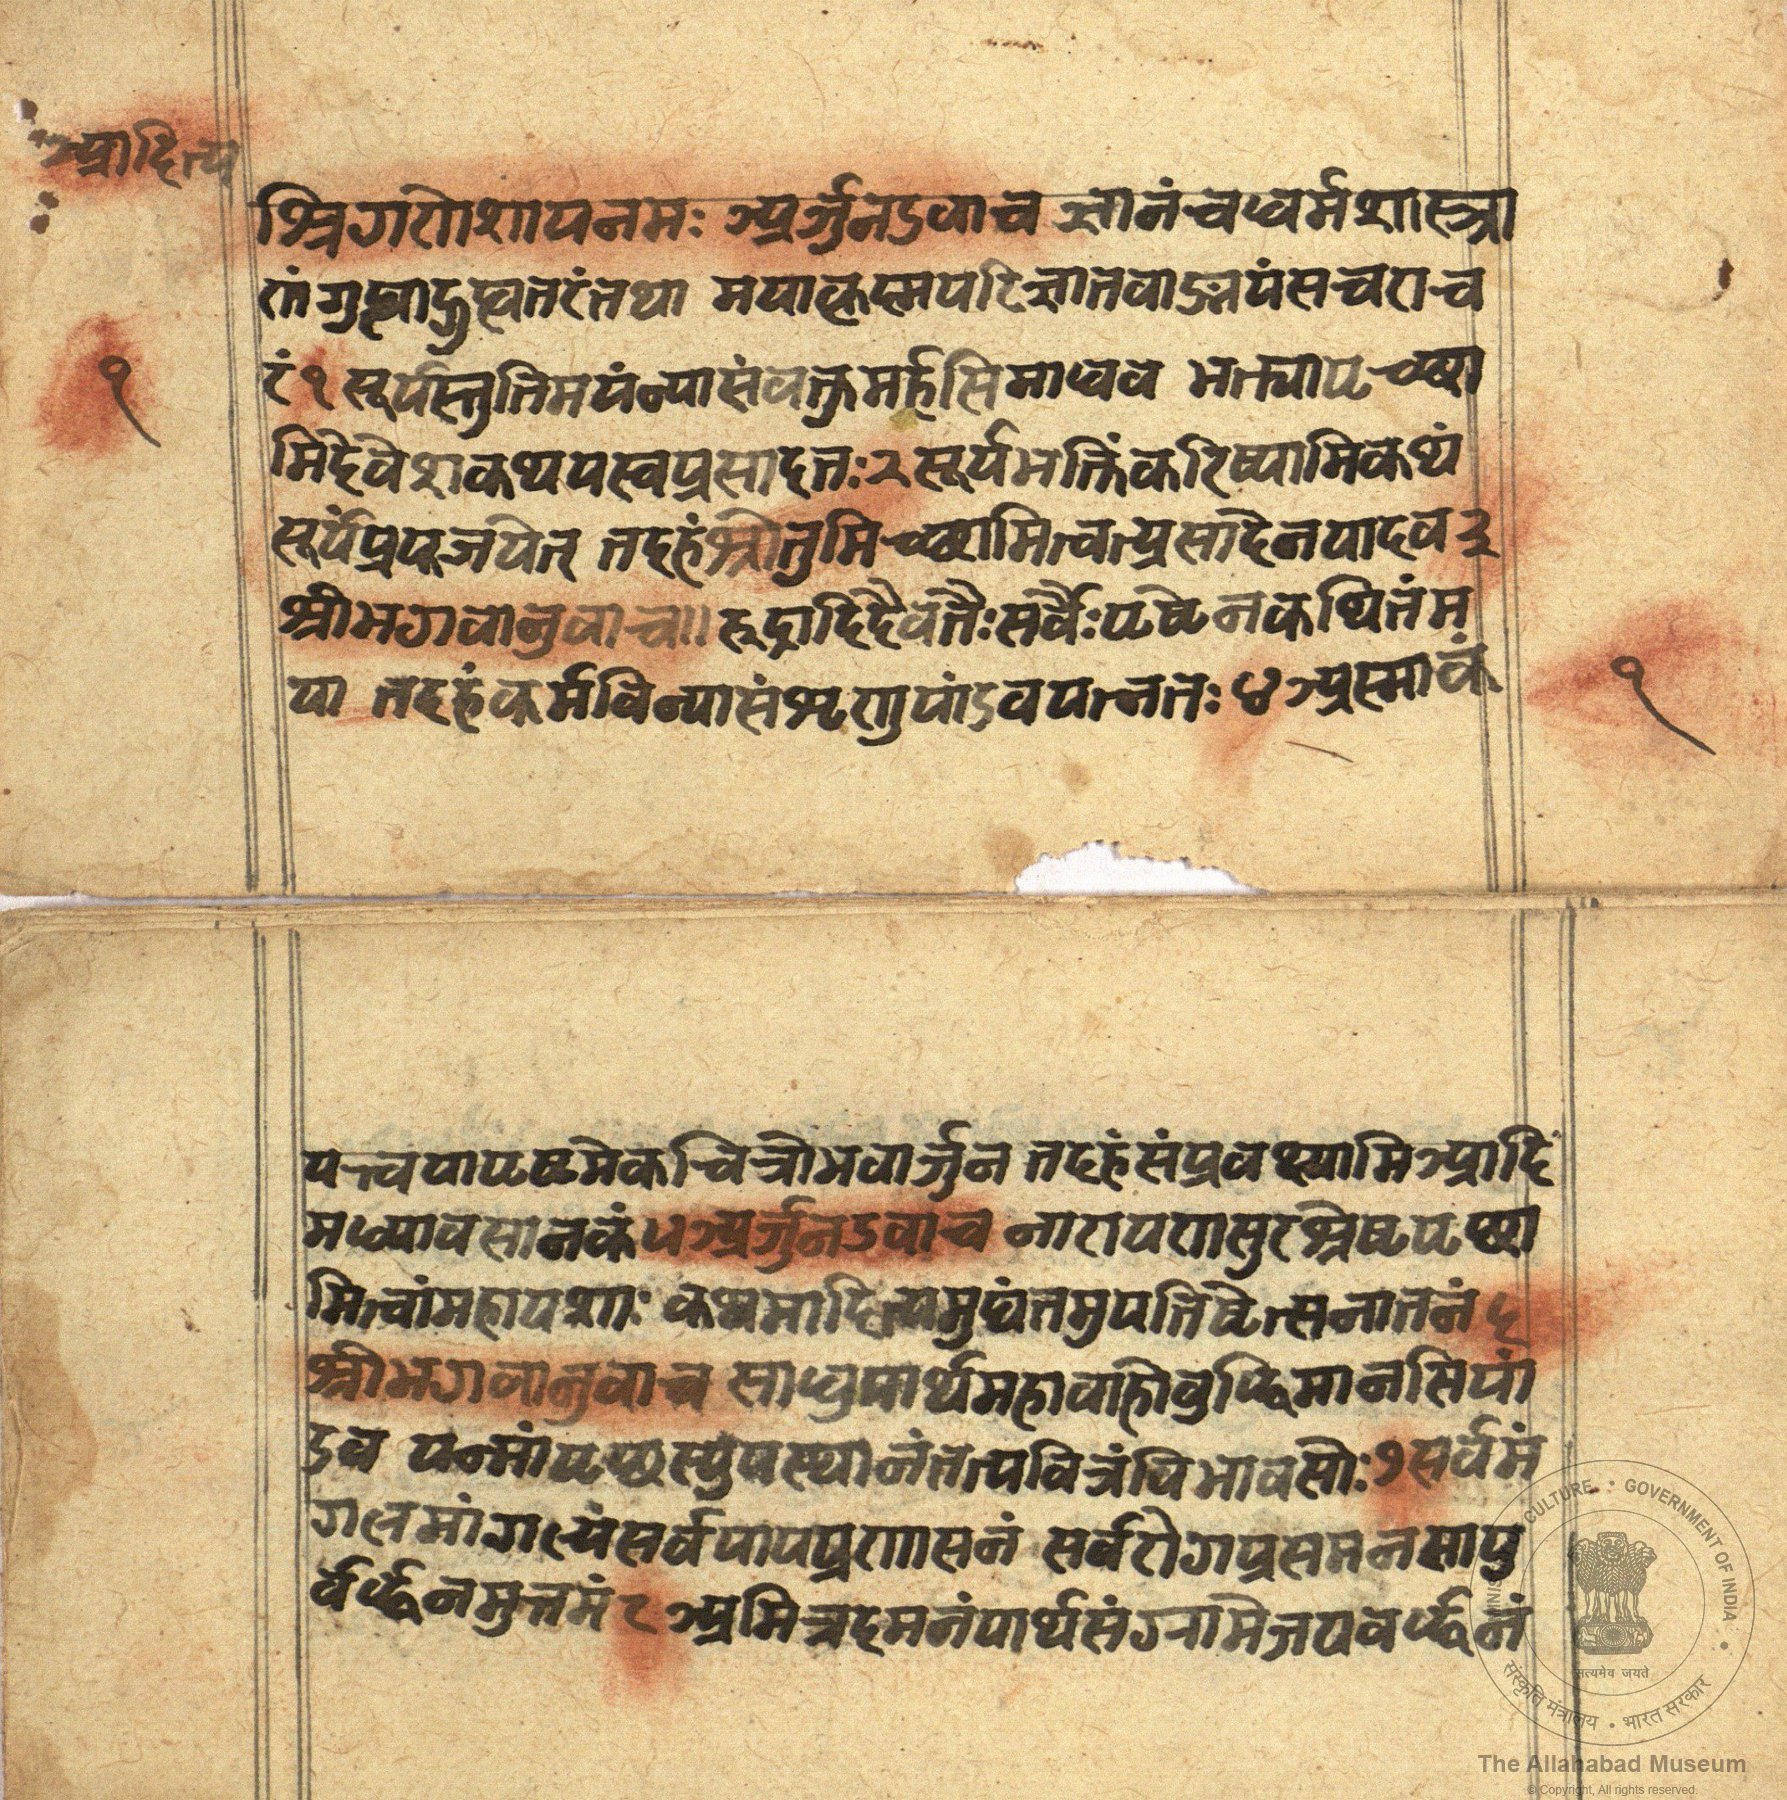 आदित्य
श्रिगणेशायनमः अर्जुनउवाच ज्ञानंचधर्मशास्त्रा
णंगुह्याद्गुह्यतरंतथा मयाकृस्मपरिज्ञातवाङ्मयंसचराच
१
रं १ सूर्यस्तुतिमयंन्यासंवक्तुमर्हसिमाधव भक्त्यापृच्छा
मिदेवेशकथयस्वप्रसादतः २ सूर्यभक्तिंकरिष्यामिकथं
सूर्यंप्रपूजयेत् तदहंश्रोतुमिच्छामित्वत्प्रसादेनयादव ३
श्रीभगवानुवाच॥ रूद्रादिदैवतैःसर्वैःपृष्टेनकथितंम
या तदहंकर्मविन्यासंशृणुपांडवयत्नतः ४ अस्माकं
१
यत्त्वयापृष्टमेकचित्तोभवार्जुन तदहंसंप्रवक्ष्यामिआदि
मध्यावसानकं ५ अर्जुनउवाच नारायणसुरश्रेष्टपृछा
मित्वांमहायशाः कथमादित्यमुद्यंतमुपतिष्टेत्सनातनं ६
श्रीभगवानुवाच साधुपार्थमहावाहोवुद्धिमानसिपां
डव यन्मांपृछस्युपस्थानंतत्पवित्रंविभावसोः ७ सर्वमं
गलमांगल्यंसर्वपापप्रणासनं सर्वरोगप्रसमनमायु
र्वर्द्धनमुत्तमं ८ अमित्रदमनंपार्थसंग्रामेजयवर्द्धनं
MINISTRY OF CULTURE • GOVERNMENT OF INDIA
सत्यमेव जयते
संस्कृति मंत्रालय • भारत सरकार
The Allahabad Museum
© Copyright, All rights reserved.